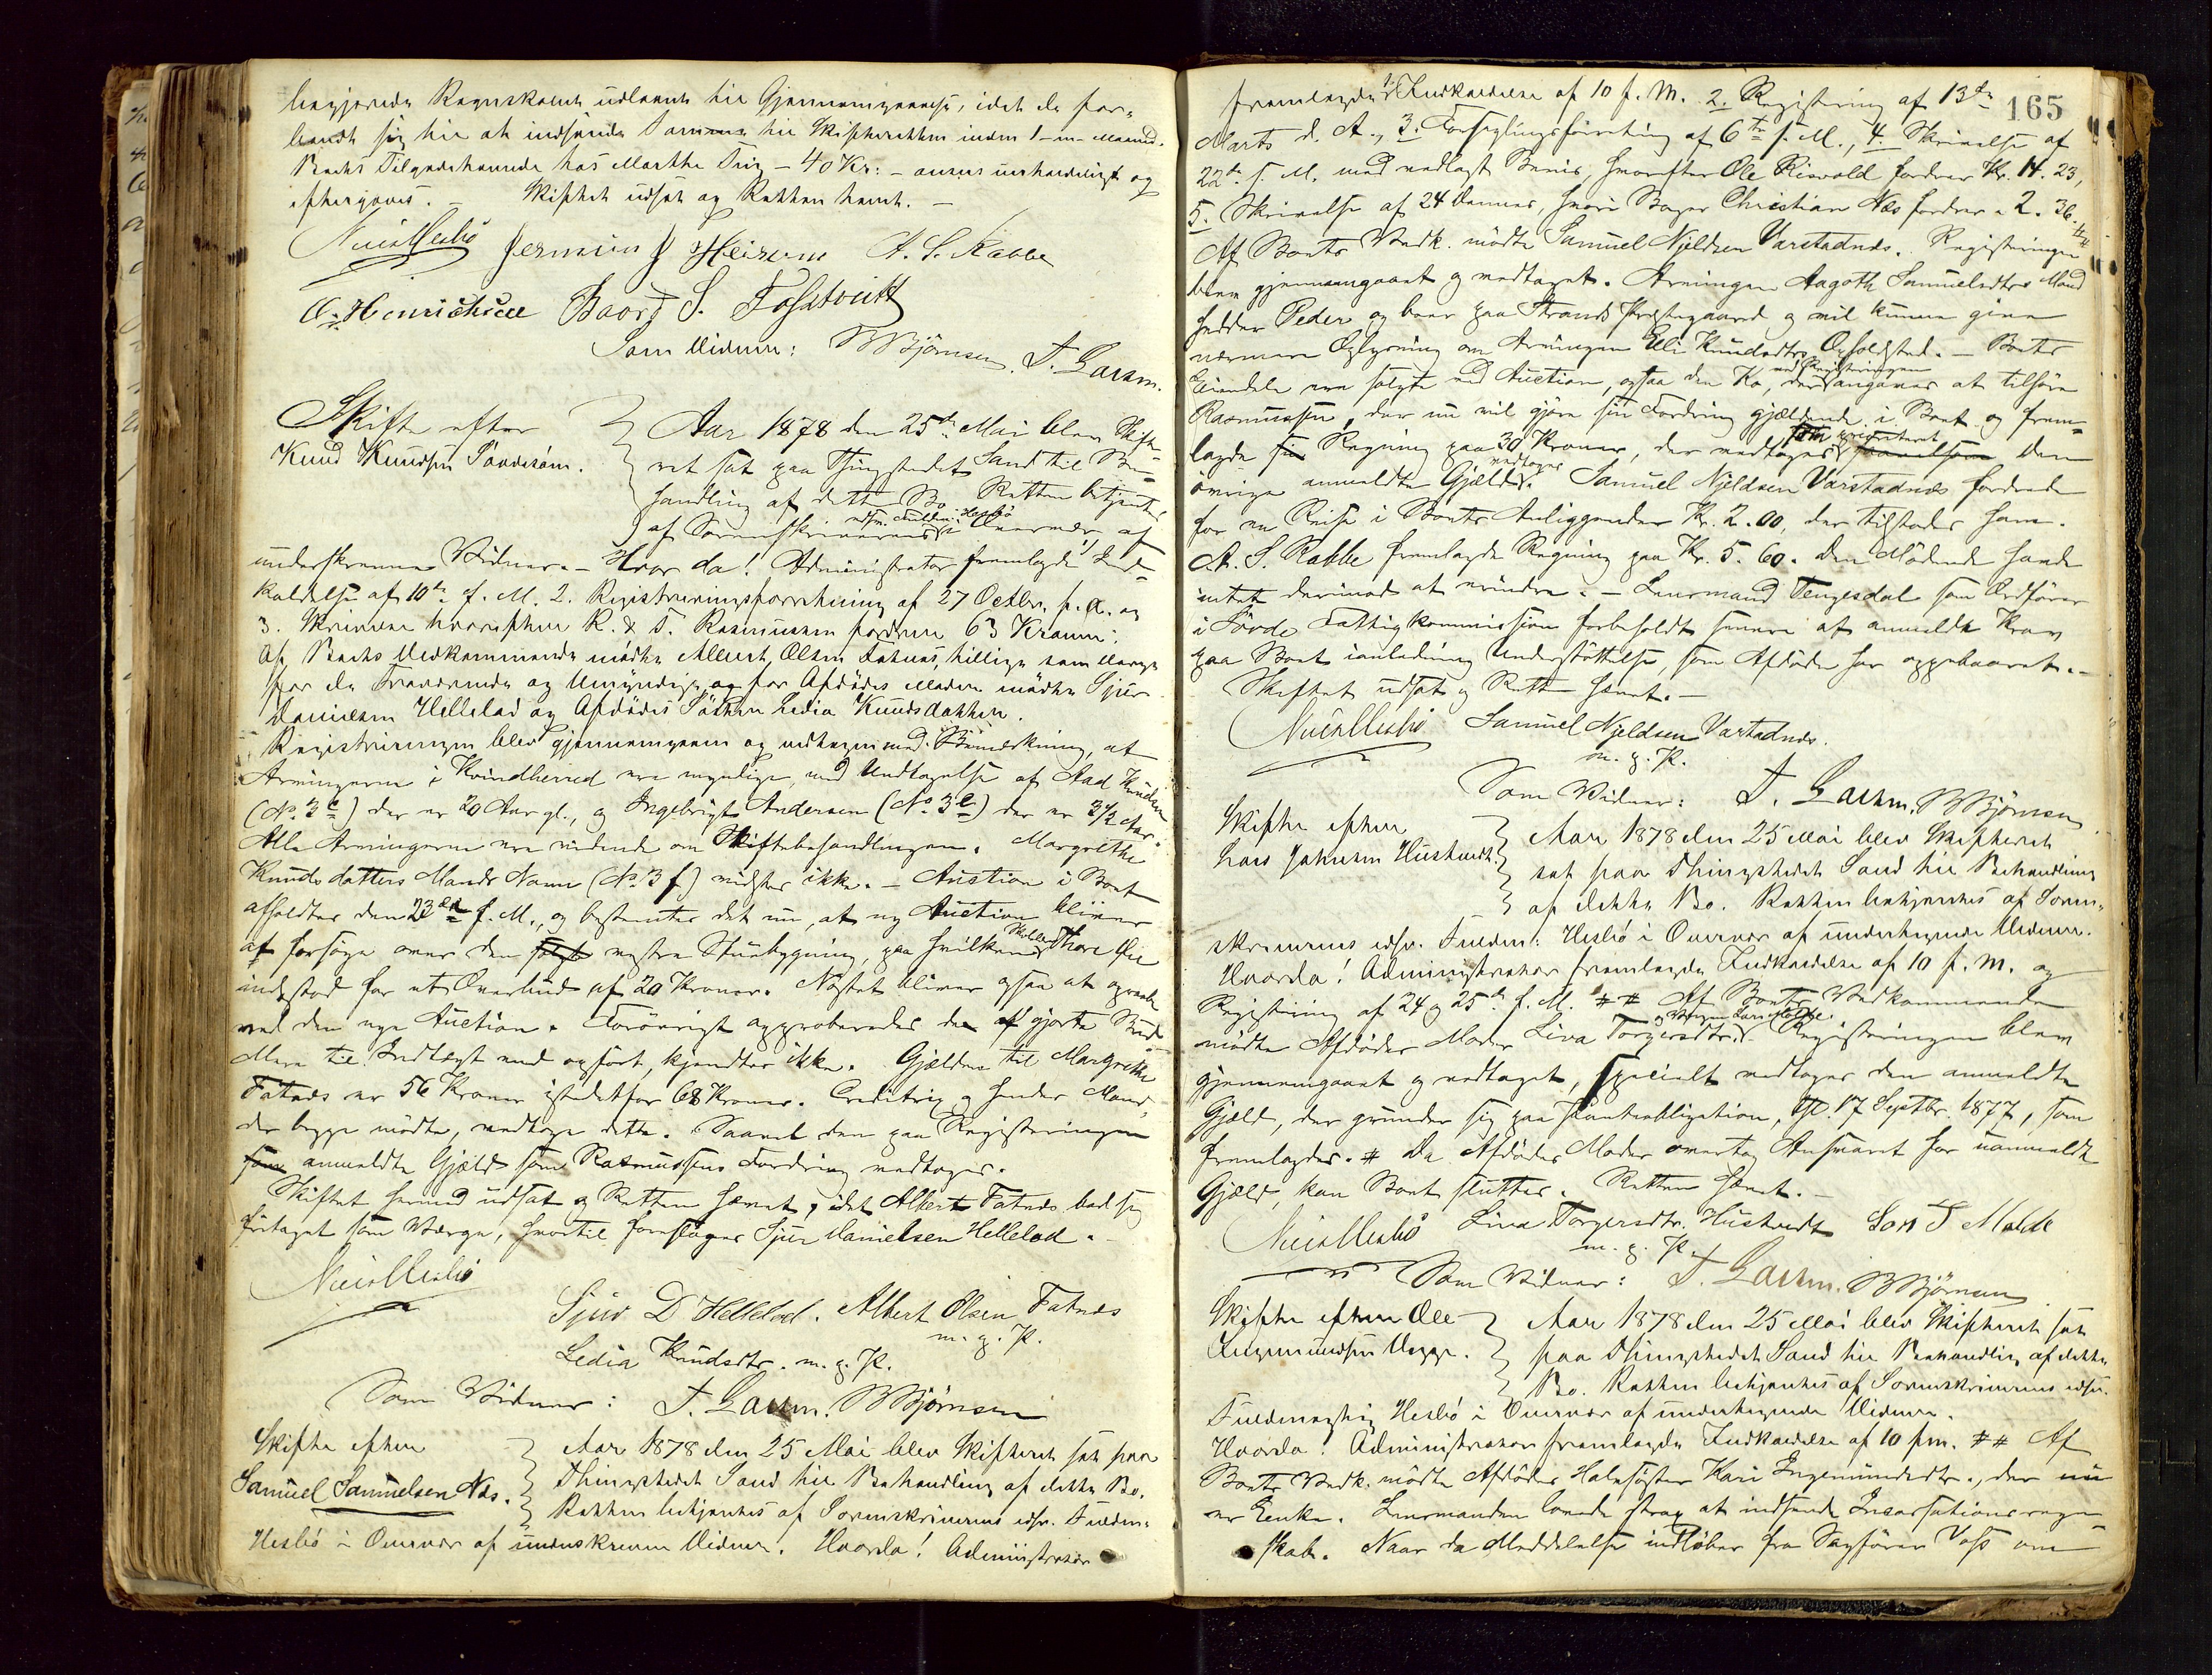 Regnskabet udlaant til Gjennemgaaelse, idet de for-
bandt sig til at indsende Samme til Skifteretten inden 1 - en - Maaned.
Boets Tilgodehavende hos Marthe - 40 Kr: - ansees uerholdeligt og
eftergives. - Skiftet udsat og Retten hævet. -
A. S. Rabbe
Baord S. Tostveitt
Som Vidner: BBjørnsen. T. Larsen.
Skifte efter
Knud Knudsen
Aar 1878 den 25de Mai blev Skifte-
ret sat paa Thingstedet Sand til Be-
handling af dette Bo. Retten betjentes
af Sorenskriverens edsv. Fuldm: Hesbø i Overvær af
underskrevne Vidner. - Hvor da! Administrator fremlagde 1) Ind-
kaldelse af 10de f. M. 2. Registreringsforretning af 27 Octbr. f. A. og
3. Skrivelse hvorefter R. & T. Rasmussen fordrer 63 Kroner.
Af Boets Vedkommende mødte Albert Olsen Fatnes, tillige som Værge
for de fraværende og Umyndige og for Afdødes Moder mødte Sjur
Danielsen Hellelad og Afdødes Søster Ledia Knudsdatter.
Registreringen blev gjennemgaaet og vedtaget med Bemærkning, at
Arvingerne i Kvindherred ere myndige, med Undtagelse af Aad Knudsen
(No. 3 c) der er 20 Aar gl., og Ingebrigt Andersen (No 3 e) der er 3½ Aar.
Alle Arvingerne ere vidende om Skiftebehandlingen. Margrethe
Knudsdatters Mands Navn (No. 3 f) vidstes ikke. - Auction i Boet
afholdtes den 23de f. M., og bestemtes det nu, at ny Auction bliver
at forsøge over den vestre Stuebygning, paa hvilken Thore
indestod for et Overbud af 20 Kroner. Nøstet bliver ogsaa at opraabe
ved den nye Auction. Forøvrigt approberedes de gjorte Bud.
Mere til Indtægt end opført, kjendtes ikke. Gjælden til Margrethe
Fatnes er 56 Kroner istedetfor 68 Kroner. Creditrix og hendes Mand,
der begge mødte, vedtoge dette. Saavel den paa Registreringen
anmeldte Gjæld som Rasmussens Fordring vedtoges.
Skiftet hermed udsat og Retten hævet, idet Albert Fatnes bad sig
fritaget som Værge, hvortil foresloges Sjur Danielsen Hellelad.
Sjur D Hellelad. Albert Olsen Fatnes
m. g. P.
Ledia Knudsdtr. m. g. P.
Som Vidner: T. Larsen. BBjørnsen
Skifte efter
Samuel Samuelsen Næs.
Aar 1878 den 25 Mai blev Skifteret sat paa
Thingstedet Sand til Behandling af dette Bo.
Retten betjentes af Sorenskriverens edsv. Fuldm:
Hesbø i Overvær af underskrevne Vidner. Hvorda! Administrator
165
fremlagde 1. Indkaldelse af 10 f. M. 2. Registrering af 13de
Marts d. A., 3. Forseglingsforretning af 6te s. M., 4. Skrivelse af
22de s. M. med vedlagt Bevis, hvorefter Ole Risvold fordrer Kr. 14. 23,
5. Skrivelse af 24 dennes, hvori Bager Christian Næs fordrer " 2. 36.
Af Boets Vedk. mødte Samuel Njeldsen Varstadnes. Registreringen
blev gjennemgaaet og vedtaget. Arvingen Aagoth Samuelsdtrs Mand
hedder Peder og boer paa Strands Præstegaard og vil kunne give
nærmere Oplysning om Arvingen Eli Knudsdtrs Opholdsted. - Boets
Eiendele ere solgte ved Auction, ogsaa den Ko, der ved Registreringen angaves at tilhøre
Rasmussen, der nu vil gjøre sin Fordring gjældende i Boet og frem-
lagde Regning paa 30 Kroner, der vedtoges som prioriteret. Den
øvrige anmeldte Gjæld vedtoges. Samuel Njeldsen Varstadnes fordrede
for en Reise i Boets Anliggender Kr. 2.00, der tilstodes ham.
A. S. Rabbe fremlagde Regning paa Kr. 5.60. Den Mødende havde
intet derimod at erindre. - Lensmand Tengesdal som Ordfører
i Fattigkommission forbeholdt senere at anmelde Krav
paa Boet i anledning Understøttelse, som Afdøde har oppebaaret. -
Skiftet udsat og Rett hævet. -
Samuel Njeldsen Varstadnes.
m. g. P.
Som Vidner: T. Larsen. BBjørnsen
Skifte efter
Lars Jakobsen Hustvedt.
Aar 1878 den 25 Mai blev Skifteret
sat paa Thingstedet Sand til Behandling
af dette Bo. Retten betjentes af Soren-
skriverens edsv. Fuldm: Hesbø i Overvær af undertegnede Vidner.
Hvorda! Administrator fremlagde Indkaldelse af 10 f. M. og
Registrering af 24 og 25de f. M. Af Boets Vedkommende
mødte Afdødes Moder Liva Torgersdtr. og Værgen Lars Molde. Registreringen blev
gjennemgaaet og vedtaget, specielt vedtoges den anmeldte
Gjæld, der grunder sig paa Panteobligation, 17 Septbr. 1877, som
fremlagdes. Da Afdødes Moder overtog Ansvaret for uanmeldt
Gjæld, kan Boet sluttes. Retten hævet. -
Liva Torgersdtr. Hustvedt Lars T Molde
m. g. P.
Som Vidner: T. Larsen. BBjørnsen
Skifte efter Ole
Ingemundsen
Aar 1878 den 25 Mai blev Skifteret sat
paa Thingstedet Sand til Behandling af dette
Bo. Retten betjentes af Sorenskriverens edsv.
Fuldmægtig Hesbø i Overvær af undertegnede Vidner.
Hvorda! Administrator fremlagde Indkaldelse af 10 f. m. Af
Boets Vedk. mødte Afdødes Halvsøster Kari Ingemundsdtr., der nu
er Enke. Lensmanden lovede strax at indsende Incassationsregn-
skab. Naar da Meddelelse indløber fra Sagfører Voss om